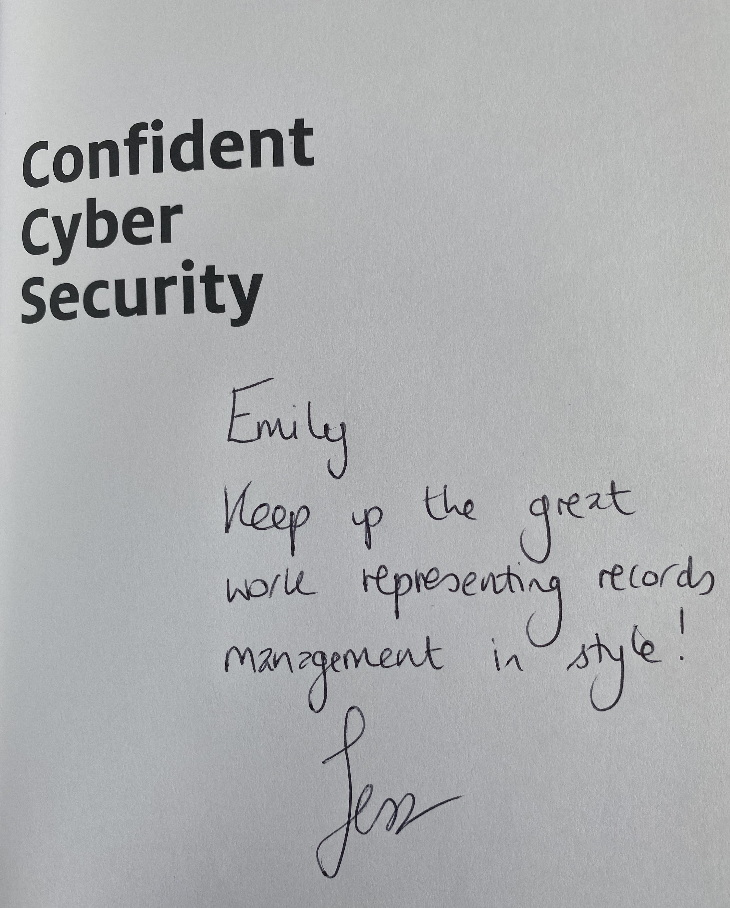 Confident
Cyber
Security
Emily
Keep up the great
work representing records
management in style!
Jess